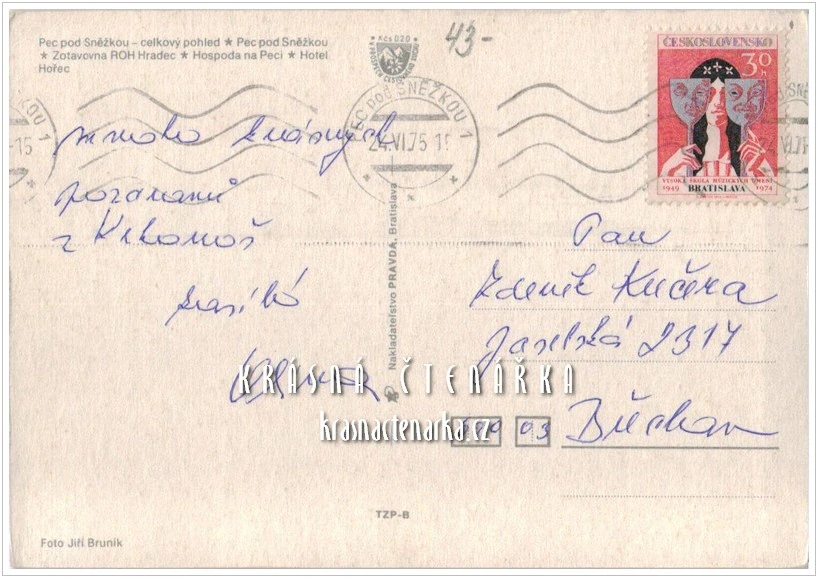 Pec pod Sněžkou – celkový pohled ★ Pec pod Sněžkou
★ Zotavovna ROH Hradec ★ Hospoda na Peci ★ Hotel
Hořec
Kčs 0,20
43-
ČESKOSLOVENSKO
30 h
VYSOKÁ ŠKOLA MÚZICKÝCH UMENÍ
1949 BRATISLAVA 1974
PEC pod SNĚŽKOU 1
24.VI.75
mnoho krásných
pozdravů
z Krkonoš
zasílá
Nakladatelstvo PRAVDA, Bratislava
Pan
Zdeněk Kučera
Jaselská 2317
03 Břeclav
KRÁSNÁ ČTENÁŘKA
krasnactenarka.cz
TZP-B
Foto Jiří Bruník